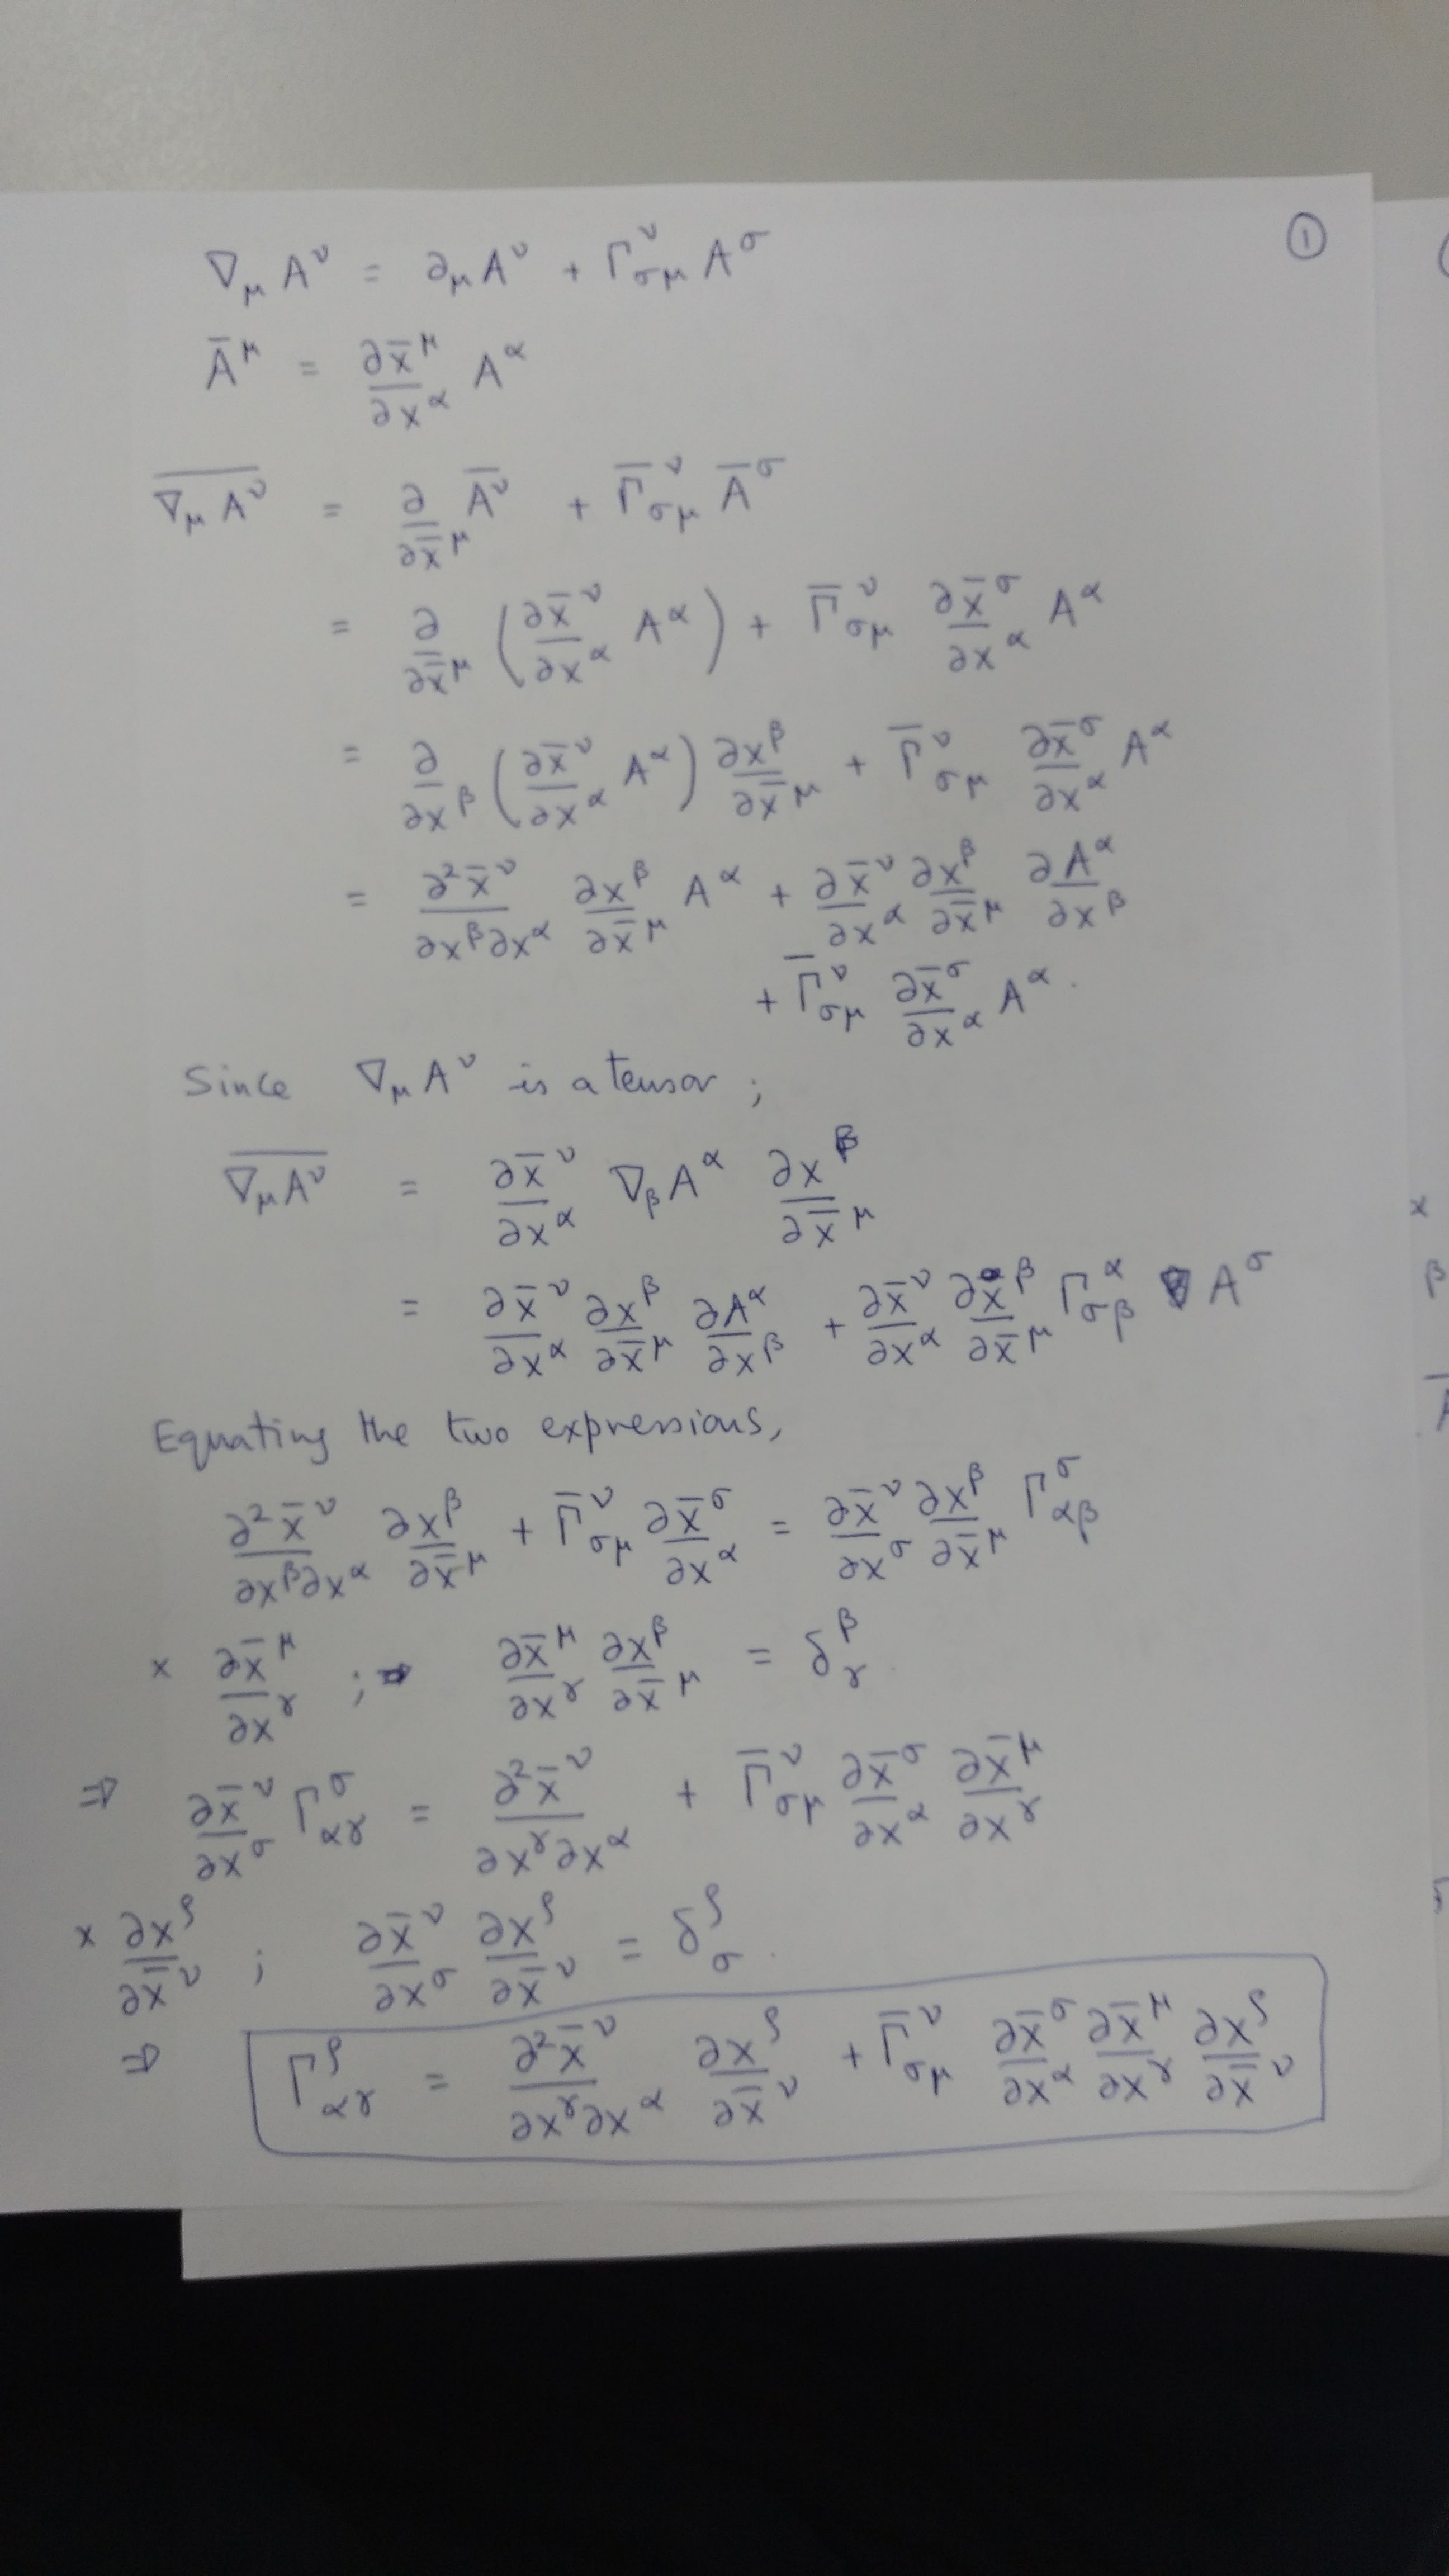 ①
∇_μ A^ν = ∂_μ A^ν + Γ^ν_{σμ} A^σ
Ā^μ = ∂x̄^μ/∂x^α A^α
\overline{∇_μ A^ν} = ∂/∂x̄^μ Ā^ν + Γ̄^ν_{σμ} Ā^σ
= ∂/∂x̄^μ (∂x̄^ν/∂x^α A^α) + Γ̄^ν_{σμ} ∂x̄^σ/∂x^α A^α
= ∂/∂x^β (∂x̄^ν/∂x^α A^α) ∂x^β/∂x̄^μ + Γ̄^ν_{σμ} ∂x̄^σ/∂x^α A^α
= ∂²x̄^ν/∂x^β∂x^α ∂x^β/∂x̄^μ A^α + ∂x̄^ν/∂x^α ∂x^β/∂x̄^μ ∂A^α/∂x^β
+ Γ̄^ν_{σμ} ∂x̄^σ/∂x^α A^α.
Since ∇_μ A^ν is a tensor;
\overline{∇_μ A^ν} = ∂x̄^ν/∂x^α ∇_β A^α ∂x^β/∂x̄^μ
= ∂x̄^ν/∂x^α ∂x^β/∂x̄^μ ∂A^α/∂x^β + ∂x̄^ν/∂x^α ∂x^β/∂x̄^μ Γ^α_{σβ} A^σ
Equating the two expressions,
∂²x̄^ν/∂x^β∂x^α ∂x^β/∂x̄^μ + Γ̄^ν_{σμ} ∂x̄^σ/∂x^α = ∂x̄^ν/∂x^σ ∂x^β/∂x̄^μ Γ^σ_{αβ}
× ∂x̄^μ/∂x^γ ; ∂x̄^μ/∂x^γ ∂x^β/∂x̄^μ = δ^β_γ.
⇒ ∂x̄^ν/∂x^σ Γ^σ_{αγ} = ∂²x̄^ν/∂x^γ∂x^α + Γ̄^ν_{σμ} ∂x̄^σ/∂x^α ∂x̄^μ/∂x^γ
× ∂x^ρ/∂x̄^ν ; ∂x̄^ν/∂x^σ ∂x^ρ/∂x̄^ν = δ^ρ_σ.
⇒ Γ^ρ_{αγ} = ∂²x̄^ν/∂x^γ∂x^α ∂x^ρ/∂x̄^ν + Γ̄^ν_{σμ} ∂x̄^σ/∂x^α ∂x̄^μ/∂x^γ ∂x^ρ/∂x̄^ν